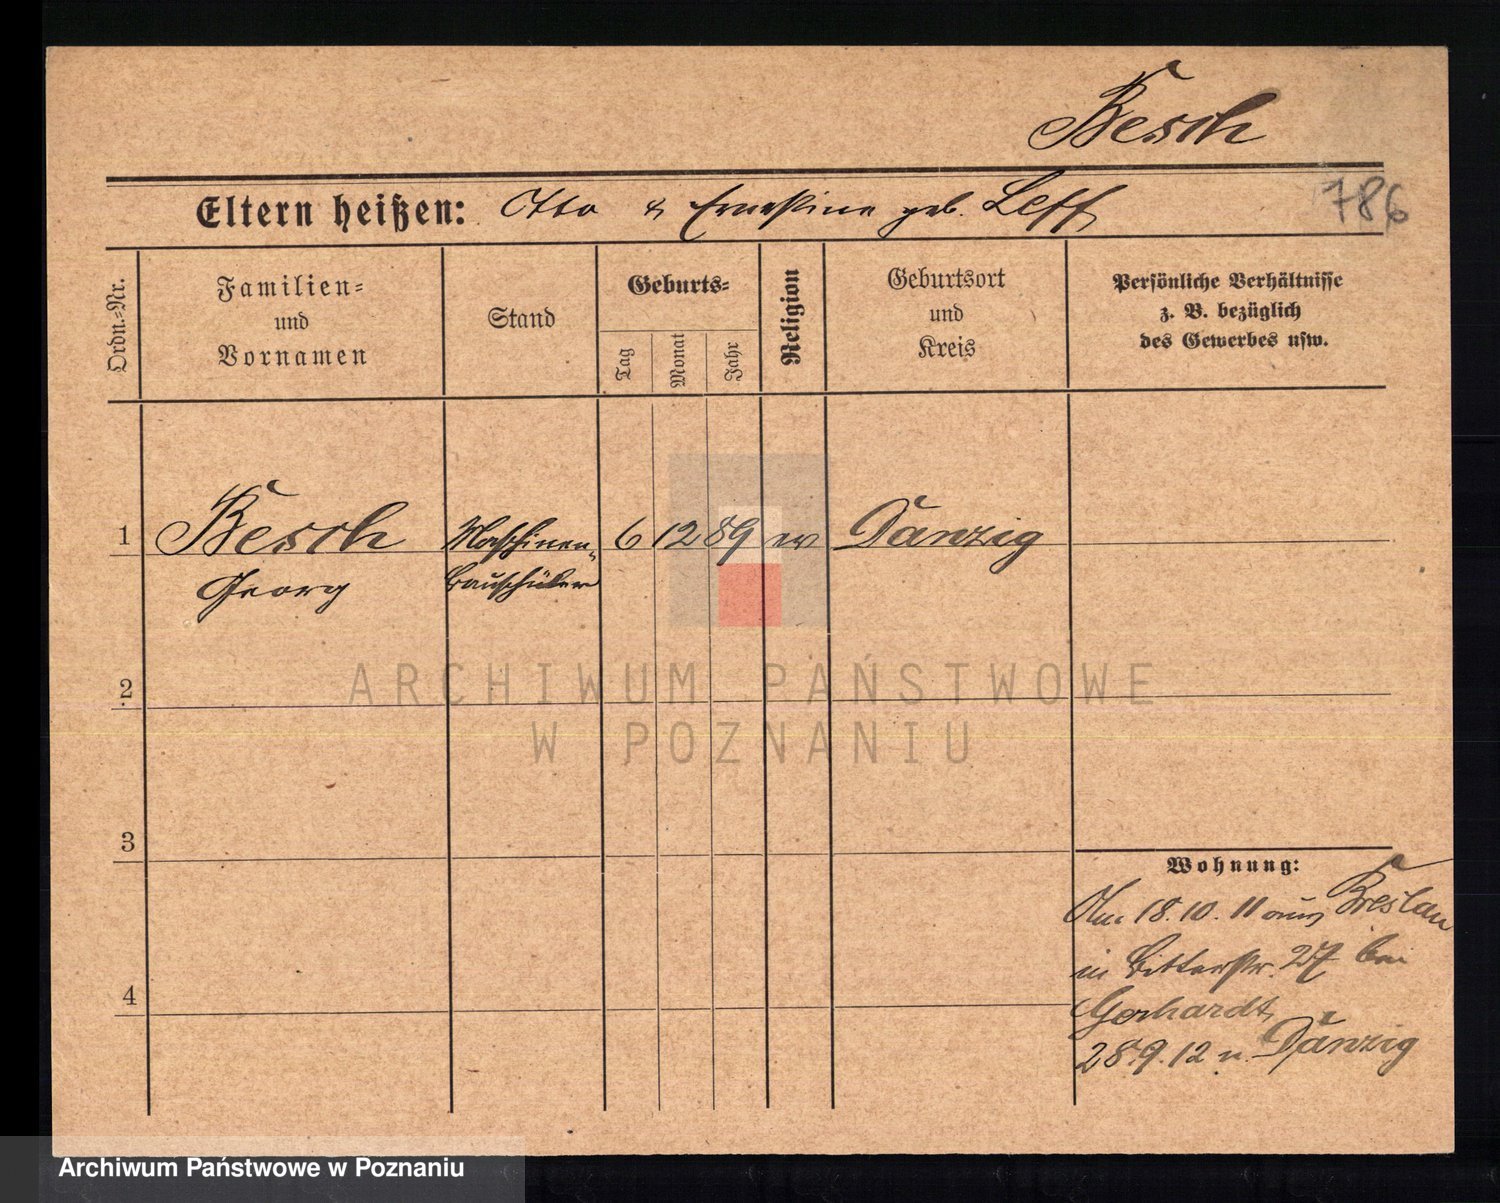 Besch
Eltern heißen: Otto & Ernestine geb. Leff
786
Ordn.-Nr.
Familien-
und
Vornamen
Stand
Geburts-
Tag
Monat
Jahr
Religion
Geburtsort
und
Kreis
Persönliche Verhältnisse
z. B. bezüglich
des Gewerbes usw.
1 Besch Maschinen- 6 12 89 ev Danzig
Georg bauschüler
ARCHIWUM PAŃSTWOWE
W POZNANIU
2
3
4
Wohnung:
18.10.11 aus Breslau
in Bitterstr. 27 bei
Gerhardt
28.9.12 n. Danzig
Archiwum Państwowe w Poznaniu